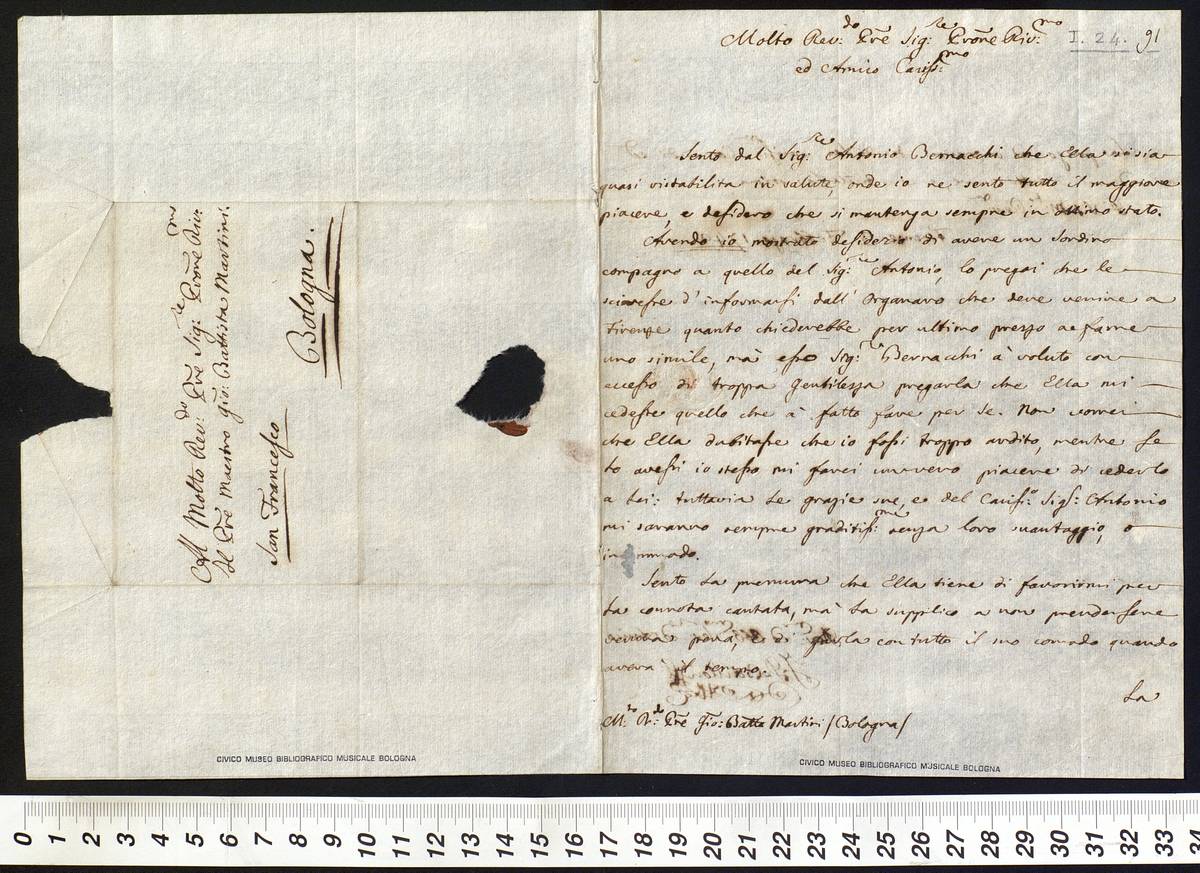 Al Molto Rev:do Pre Sig:re Prone Riv:mo
Il Pre Maestro Gio: Battista Martini.
San Francesco
Bologna.
CIVICO MUSEO BIBLIOGRAFICO MUSICALE BOLOGNA
I. 24. 91
Molto Rev:do Pre Sig:re Prone Riv:mo
ed Amico Cariss:mo
Sento dal Sig:re Antonio Bernacchi che Ella si sia
quasi ristabilita in salute, onde io ne sento tutto il maggiore
piacere, e desidero che si mantenga sempre in ottimo stato.
Avendo io mostrato desiderio di avere un sordino
compagno a quello del Sig:re Antonio, lo pregai che le
d'informarsi dall'Organaro che deve venire a
Firenze quanto chiederebbe per ultimo prezzo a farne
uno simile, mà esso Sig:re Bernacchi à voluto con
eccesso di troppa gentilezza pregarla che Ella mi
cedesse quello che à fatto fare per se. Non vorrei
che Ella dubitasse che io fossi troppo ardito, mentre se
lo avessi io stesso mi farei un vero piacere di cederlo
a Lei: tuttavia le grazie sue, e del Cariss:o Sig:r Antonio
mi saranno sempre graditiss:me senza loro svantaggio, o
incommodo.
Sento la premura che Ella tiene di favorirmi per
la connota cantata, mà la supplico a non prendersene
veruna pena, e di con tutto il suo comodo quando
averà il tempo.
La
M:to R:do Pre Gio: Batta Martini /Bologna/
CIVICO MUSEO BIBLIOGRAFICO MUSICALE BOLOGNA
0 1 2 3 4 5 6 7 8 9 10 11 12 13 14 15 16 17 18 19 20 21 22 23 24 25 26 27 28 29 30 31 32 33 34